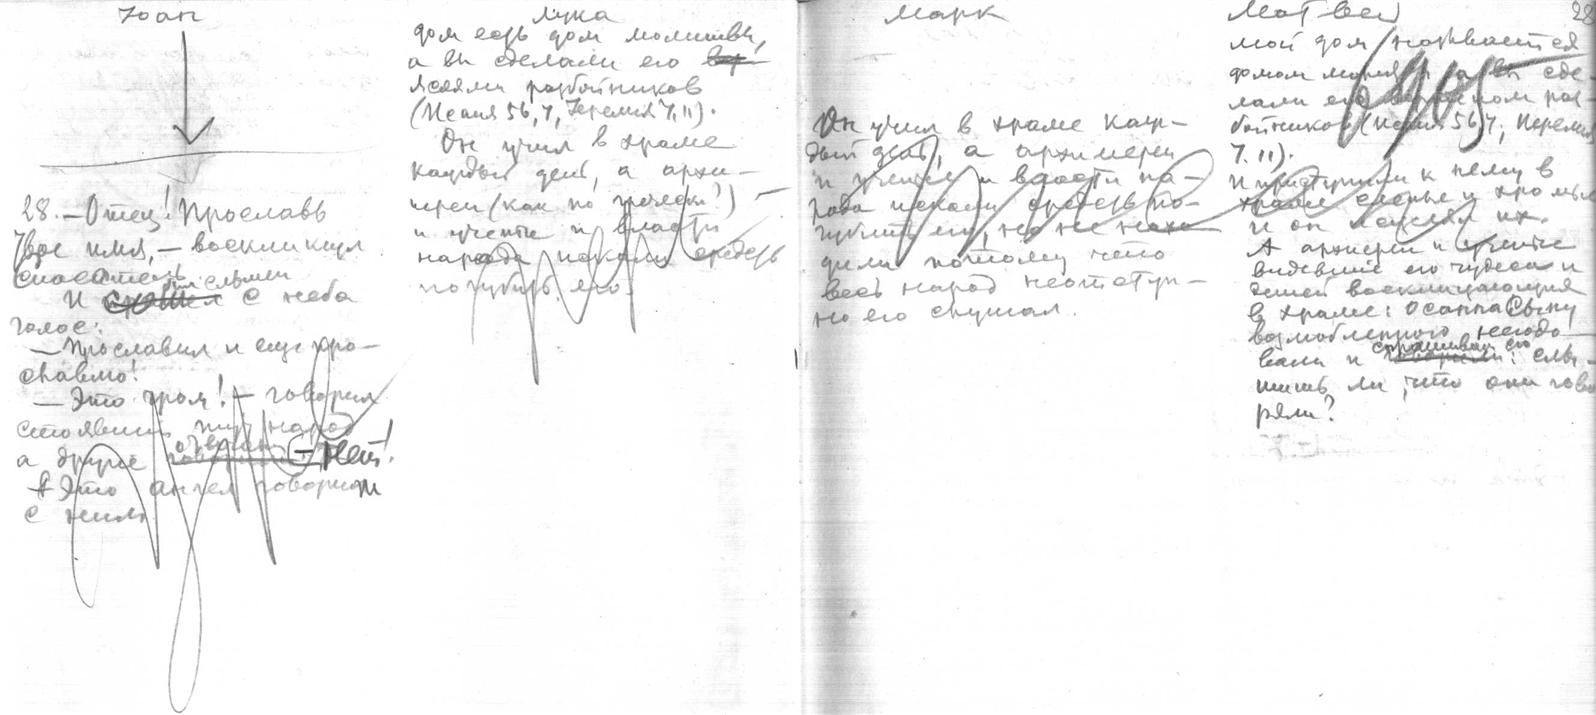 Иоан
28. – Отец! Прославь
Твое имя, – воскликнул
спаситель.
И был слышен с неба
голос:
– Прославил и еще про-
славлю!
– Это гром! – говорил
стоявший тут народ
а другие отвечали – Нет!
Это ангел говорил
с ним.
Лука
дом есть дом молитвы,
а вы сделали его
разбойников
(Исаия 56,7, Иеремия 7,11).
Он учил в храме
каждый день, а архи-
иереи (как по гречески?)
и учители и власти
народа искали средств
погубить его.
Марк
Он учил в храме каж-
дый день, а архиереи
и учители и власти на-
рода искали средств по-
губить его, но не нахо
дили потому что
весь народ неотступ-
но его слушал.
Матвей
22
мой дом называется
домом молитвы а вы сде-
лали его вертепом раз
бойников (Исаия 56,7, Иеремия
7.11).
И приступили к нему в
храме слепые и хромые
и он исцелял их.
А архиереи и учители
видевшие его чудеса и
детей восклицающих
в храме: осанна Сыну
возлюбленного негодо-
вали и спрашивали его: слы-
шишь ли, что они гово
рили?